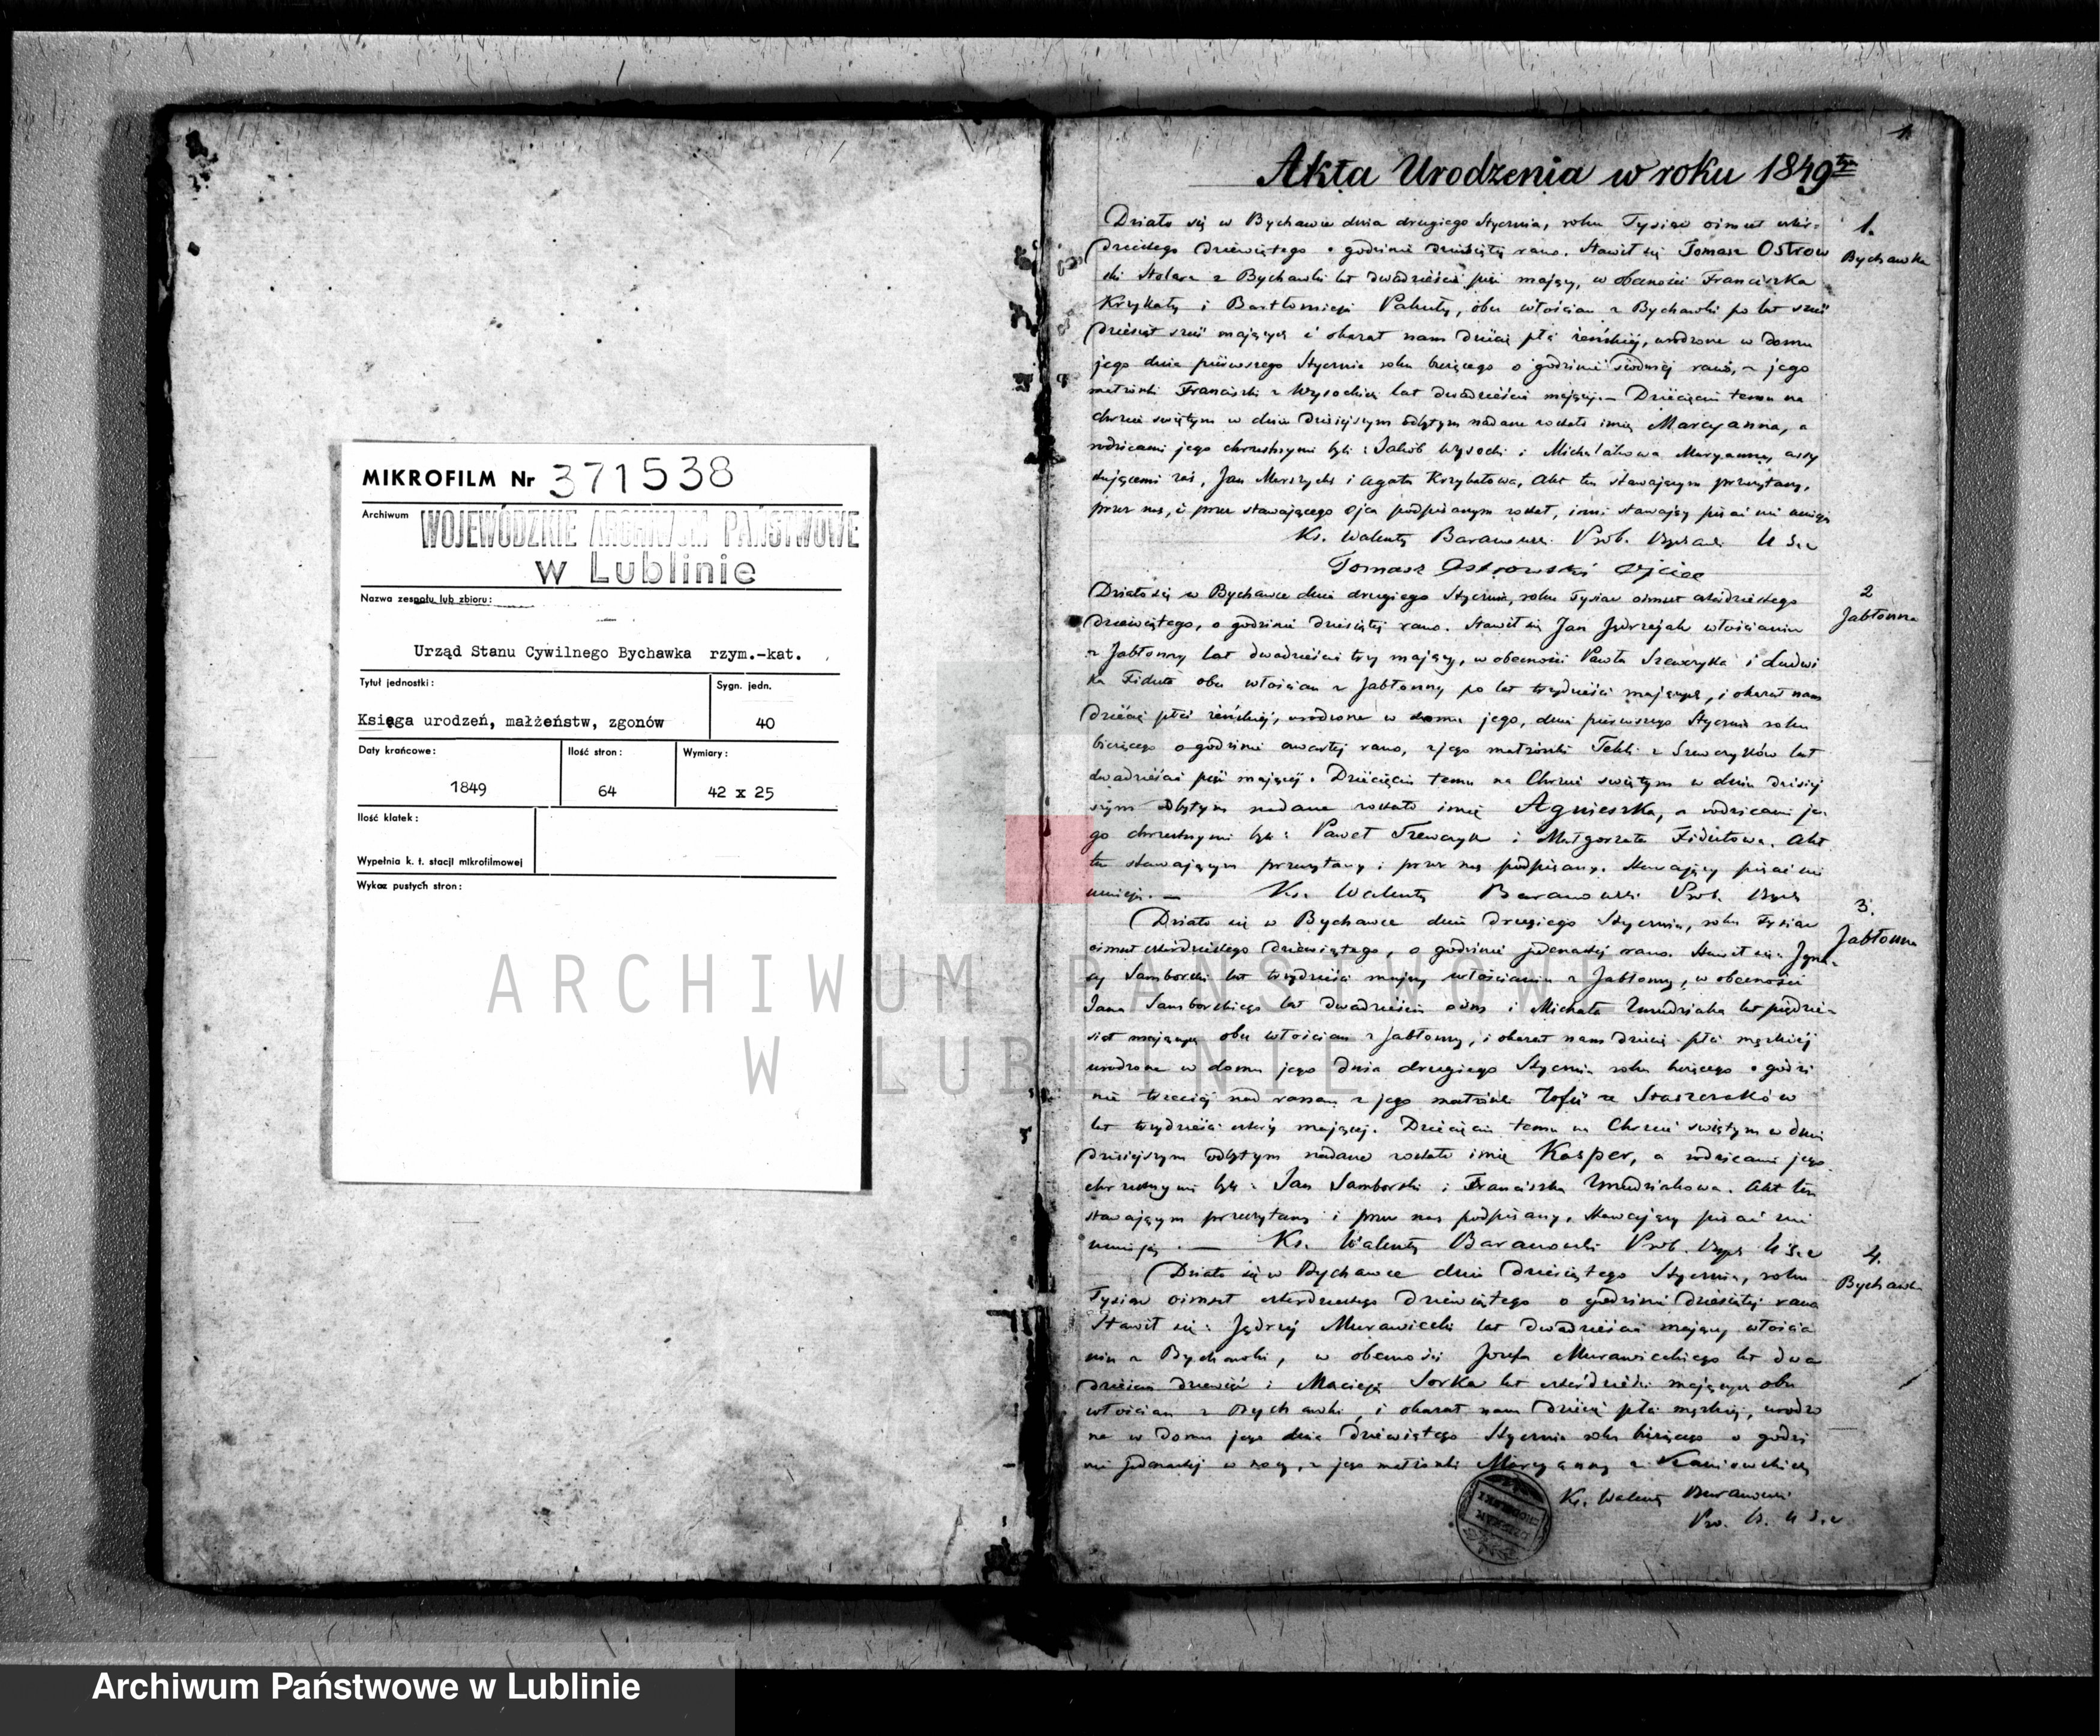 MIKROFILM Nr 371538
Archiwum WOJEWÓDZKIE ARCHIWUM PAŃSTWOWE
w Lublinie
Nazwa zespołu lub zbioru:
Urząd Stanu Cywilnego Bychawka rzym.-kat.
Tytuł jednostki: Sygn. jedn.
Księga urodzeń, małżeństw, zgonów 40
Daty krańcowe: Ilość stron: Wymiary:
1849 64 42 x 25
Ilość klatek:
Wypełnia k. t. stacji mikrofilmowej
Wykaz pustych stron:
1.
Akta Urodzenia w roku 1849
1.
Bychawka
Działo się w Bychawce dnia drugiego Stycznia, roku Tysiąc ośmset czter-
dziestego dziewiątego o godzinie dziesiątej rano. Stawił się Tomasz Ostrow
ski Stolarz z Bychawki lat dwadzieścia pięć mający, w obecności Franciszka
i Bartłomieja Pakuły, obu włościan z Bychawki po lat
mających i okazał nam dziecię płci żeńskiej, urodzone w domu
jego dnia pierwszego Stycznia roku bieżącego o godzinie siódmej rano, z jego
małżonki Franciszki z Wysockich lat dwadzieścia mającej.— Dziecięciu temu na
chrzcie świętym w dniu dzisiejszym odbytym nadane zostało imię Maryanna, a
rodzicami jego chrzestnymi byli: Jakób Wysocki i Michalakowa Maryanna, assy
stującemi zaś, Jan i Agata Akt ten stawającym przeczytany,
przez nas, i przez stawającego Ojca podpisanym został, inni stawający pisać nie umieją
Ks. Walenty Baranowski Prob.
Tomasz Ostrowski Ojciec
2
Jabłonna
Działo się w Bychawce dnia drugiego Stycznia, roku Tysiąc ośmset czterdziestego
dziewiątego, o godzinie dziesiątej rano. Stawił się Jan Jędrzejak włościanin
z Jabłonny lat dwadzieścia trzy mający, w obecności Pawła Szewczyka i Ludwi
ka Fiduta obu włościan z Jabłonny po lat trzydzieści mających, i okazał nam
dziecię płci żeńskiej, urodzone w domu jego, dnia pierwszego Stycznia roku
bieżącego o godzinie czwartej rano, z jego małżonki Tekli z Szewczyków lat
dwadzieścia pięć mającej. Dziecięciu temu na Chrzcie świętym w dniu dzisiej
szym odbytym nadane zostało imię Agnieszka, a rodzicami je-
go chrzestnymi byli: Paweł Szewczyk i Małgorzata Fidutowa. Akt
ten stawającym przeczytany i przez nas podpisany. Stawający pisać nie
umieją.— Ks. Walenty Baranowski Prob.
3.
Jabłonna
Działo się w Bychawce dnia drugiego Stycznia, roku Tysiąc
ośmset czterdziestego dziewiątego, o godzinie jedenastej rano. Stawił się: Igna-
cy Samborski lat trzydzieści mający włościanin z Jabłonny, w obecności
Jana Samborskiego lat dwadzieścia ośm i Michała Zmudziaka lat pięćdzie-
siąt mających obu włościan z Jabłonny, i okazał nam dziecię płci męzkiej
urodzone w domu jego dnia drugiego Stycznia roku bieżącego o godzi
nie trzeciej nad ranem z jego małżonki Zofii ze Staszczaków
lat trzydzieści cztery mającej. Dziecięciu temu na Chrzcie świętym w dniu
dzisiejszym odbytym nadano zostało imię Kasper, a rodzicami jego
chrzestnymi byli: Jan Samborski i Franciszka Zmudziakowa. Akt ten
stawającym przeczytany i przez nas podpisany, Stawający pisać nie
umieją.— Ks. Walenty Baranowski Prob.
4.
Bychawka
Działo się w Bychawce dnia dziesiątego Stycznia, roku
Tysiąc ośmset czterdziestego dziewiątego o godzinie dziesiątej rano
Stawił się: Jędrzej Murawiecki lat dwadzieścia mający włościa
nin z Bychawki, w obecności Józefa Murawieckiego lat dwa
dzieścia dziewięć i Macieja Sorka lat czterdzieści mających obu
włościan z Bychawki, i okazał nam dziecię płci męzkiej, urodzo
ne w domu jego dnia dziewiątego Stycznia roku bieżącego o godzi
nie jedenastej w nocy, z jego małżonki Maryanny z
Ks. Walenty Baranowski
ARCHIWUM PAŃSTWOWE
W LUBLINIE
Archiwum Państwowe w Lublinie